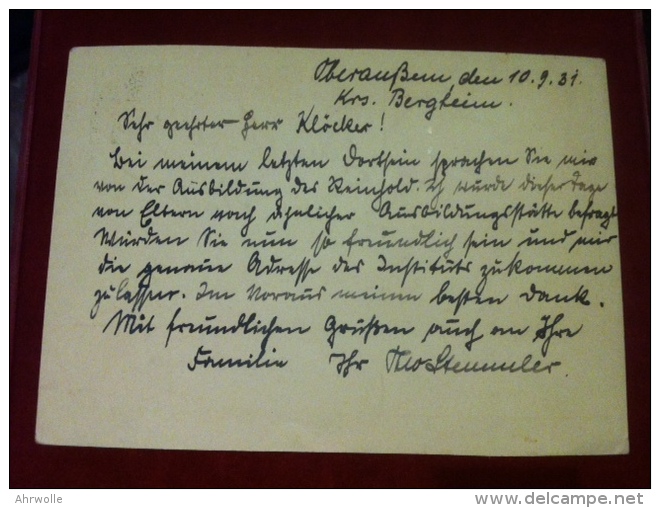 Oberaußem, den 10.9.31.
Krs. Bergheim.
Sehr geehrter Herr Klöcker!
Bei meinem letzten Dortsein sprachen Sie mir
von der Ausbildung des Reinhold. Ich wurde dieser Tage
von Eltern nach ähnlicher Ausbildungsstätte befragt
Würden Sie nun so freundlich sein und mir
die genaue Adresse des Instituts zukommen
zu lassen. Im Voraus meinen besten Dank.
Mit freundlichen Grüßen auch an Ihre
Familie Ihr Theo Stemmler.
Ahrwolle
www.delcampe.net